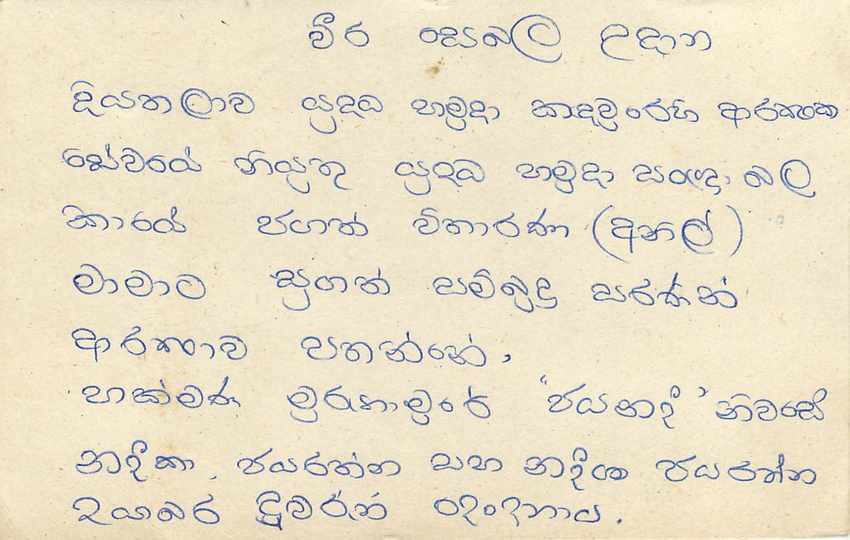 වීර සෙබල උදාන
දියතලාව යුද්ධ හමුදා කඳවුරෙහි ආරක්ෂක
සේවයේ නියුතු යුද්ධ හමුදා සංඥා බල
කාරයේ ජගත් විතාරණ (අනිල්)
මාමාට සුගත් සම්බුදු සරණින්
ආරක්ෂාව පතන්නේ,
හක්මණ මුරුතාමුරේ "ජයනදී" නිවසේ
නදීකා, ජයරත්න සහ නදීශ ජයරත්න
දයාබර දූවරුන් දෙදෙනාය.